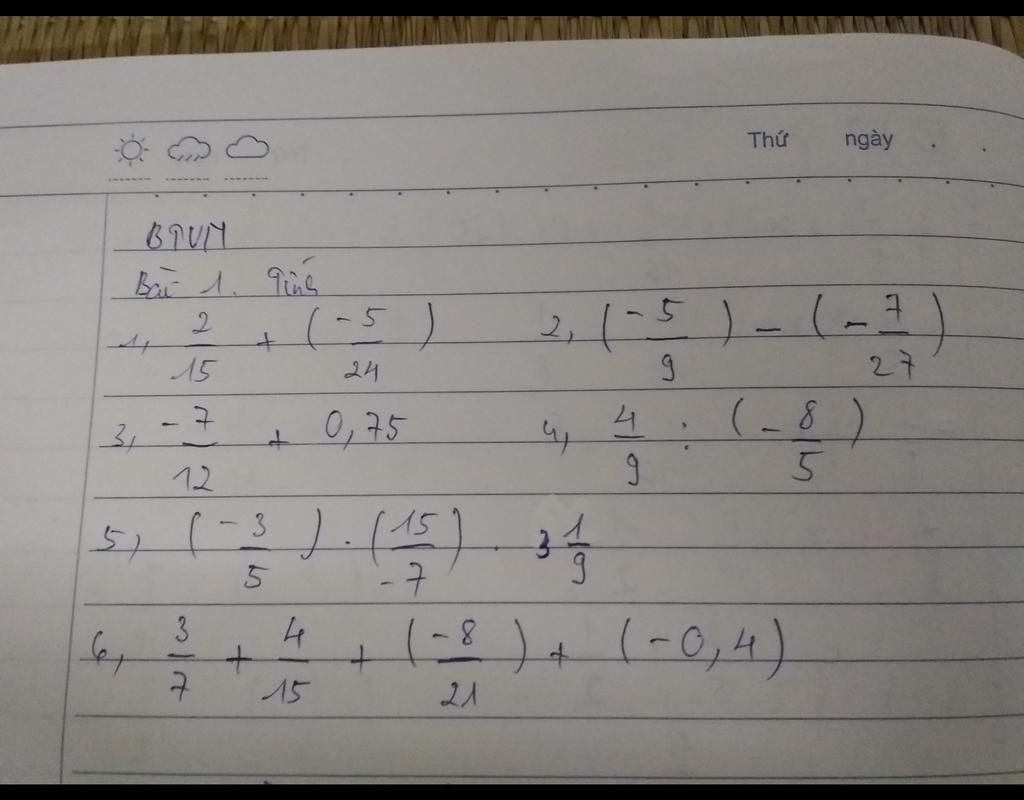 Thứ ngày
BTVN
Bài 1. Tính
1, 2/15 + (-5/24) 2, (-5/9) - (-7/27)
3, -7/12 + 0,75 4, 4/9 : (-8/5)
5) (-3/5) . (15/-7) . 3 1/9
6, 3/7 + 4/15 + (-8/21) + (-0,4)